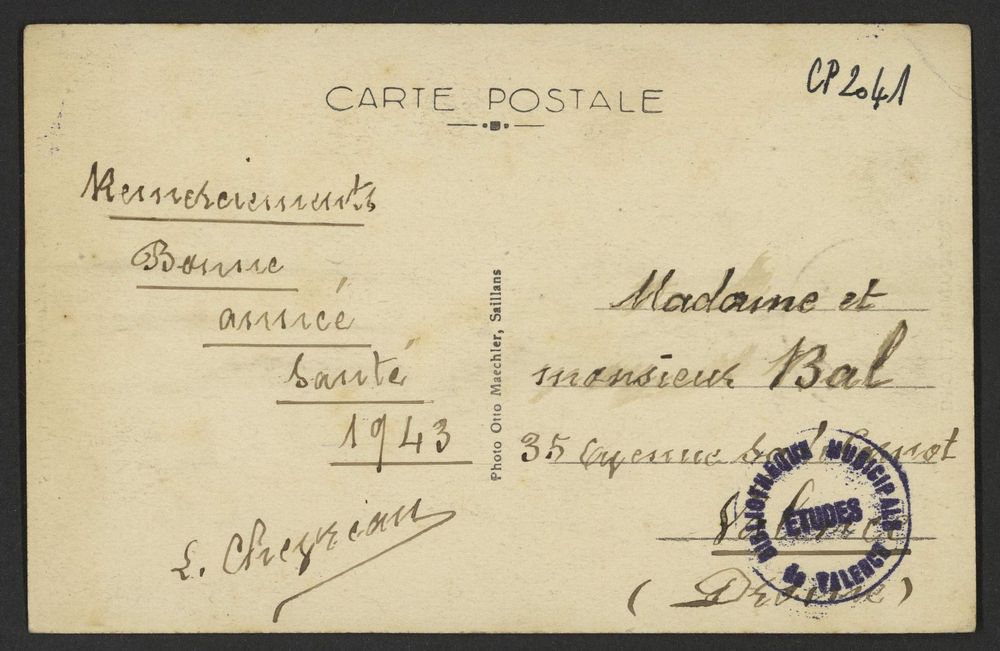 CARTE POSTALE
CP2041
Remerciements
Bonne
année
Santé
1943
Photo Otto Maechler, Saillans
Madame et
monsieur Bal
35 Avenue Sadi Carnot
Valence
(Drôme)
BIBLIOTHÈQUE MUNICIPALE
ETUDES
de VALENCE